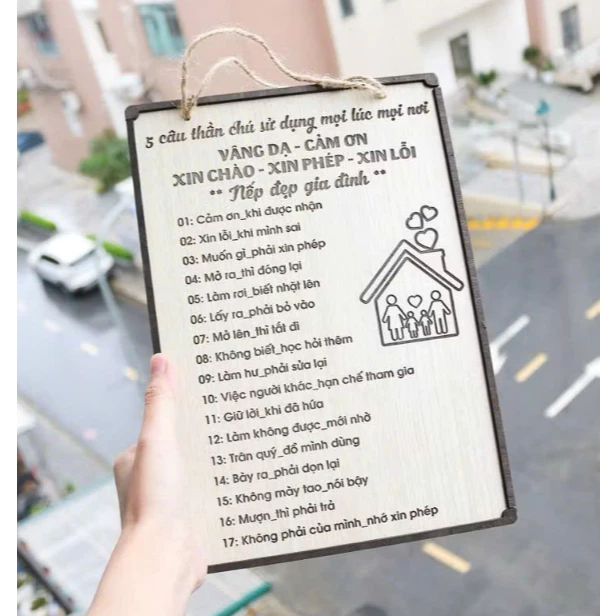 5 câu thần chú sử dụng mọi lúc mọi nơi
VÂNG DẠ - CẢM ƠN
XIN CHÀO - XIN PHÉP - XIN LỖI
** Nếp đẹp gia đình **
01: Cảm ơn_khi được nhận
02: Xin lỗi_khi mình sai
03: Muốn gì_phải xin phép
04: Mở ra_thì đóng lại
05: Làm rơi_biết nhặt lên
06: Lấy ra_phải bỏ vào
07: Mở lên_thì tắt đi
08: Không biết_học hỏi thêm
09: Làm hư_phải sửa lại
10: Việc người khác_hạn chế tham gia
11: Giữ lời_khi đã hứa
12: Làm không được_mới nhờ
13: Trân quý_đồ mình dùng
14: Bày ra_phải dọn lại
15: Không mày tao_nói bậy
16: Mượn_thì phải trả
17: Không phải của mình_nhớ xin phép